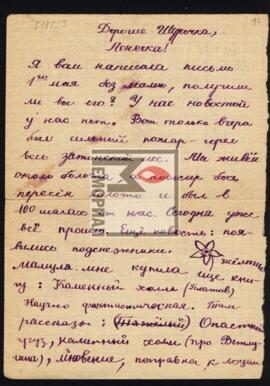 Дорогие Шурочка,
Ленечка!
Я вам написала письмо
1го мая без мамы, получили
ли вы его? У нас новостей
у нас нет. Вот только вчера
был сильный пожар - горел
весь лес. Мы живём
около болота
болото и был в
100 шагах от нас. Сегодня уже
всё прошло. Ещё новость: поя
вились подснежники. жёлтые
мамуся мне купила еще кни
гу: Каменный холм (Платов)
Научно фантастическая. Там
рассказы: (Тяжёлый) Опасный
груз, каменный холм (про
), Мновение, поправка к лоции
МЕМОРИАЛ